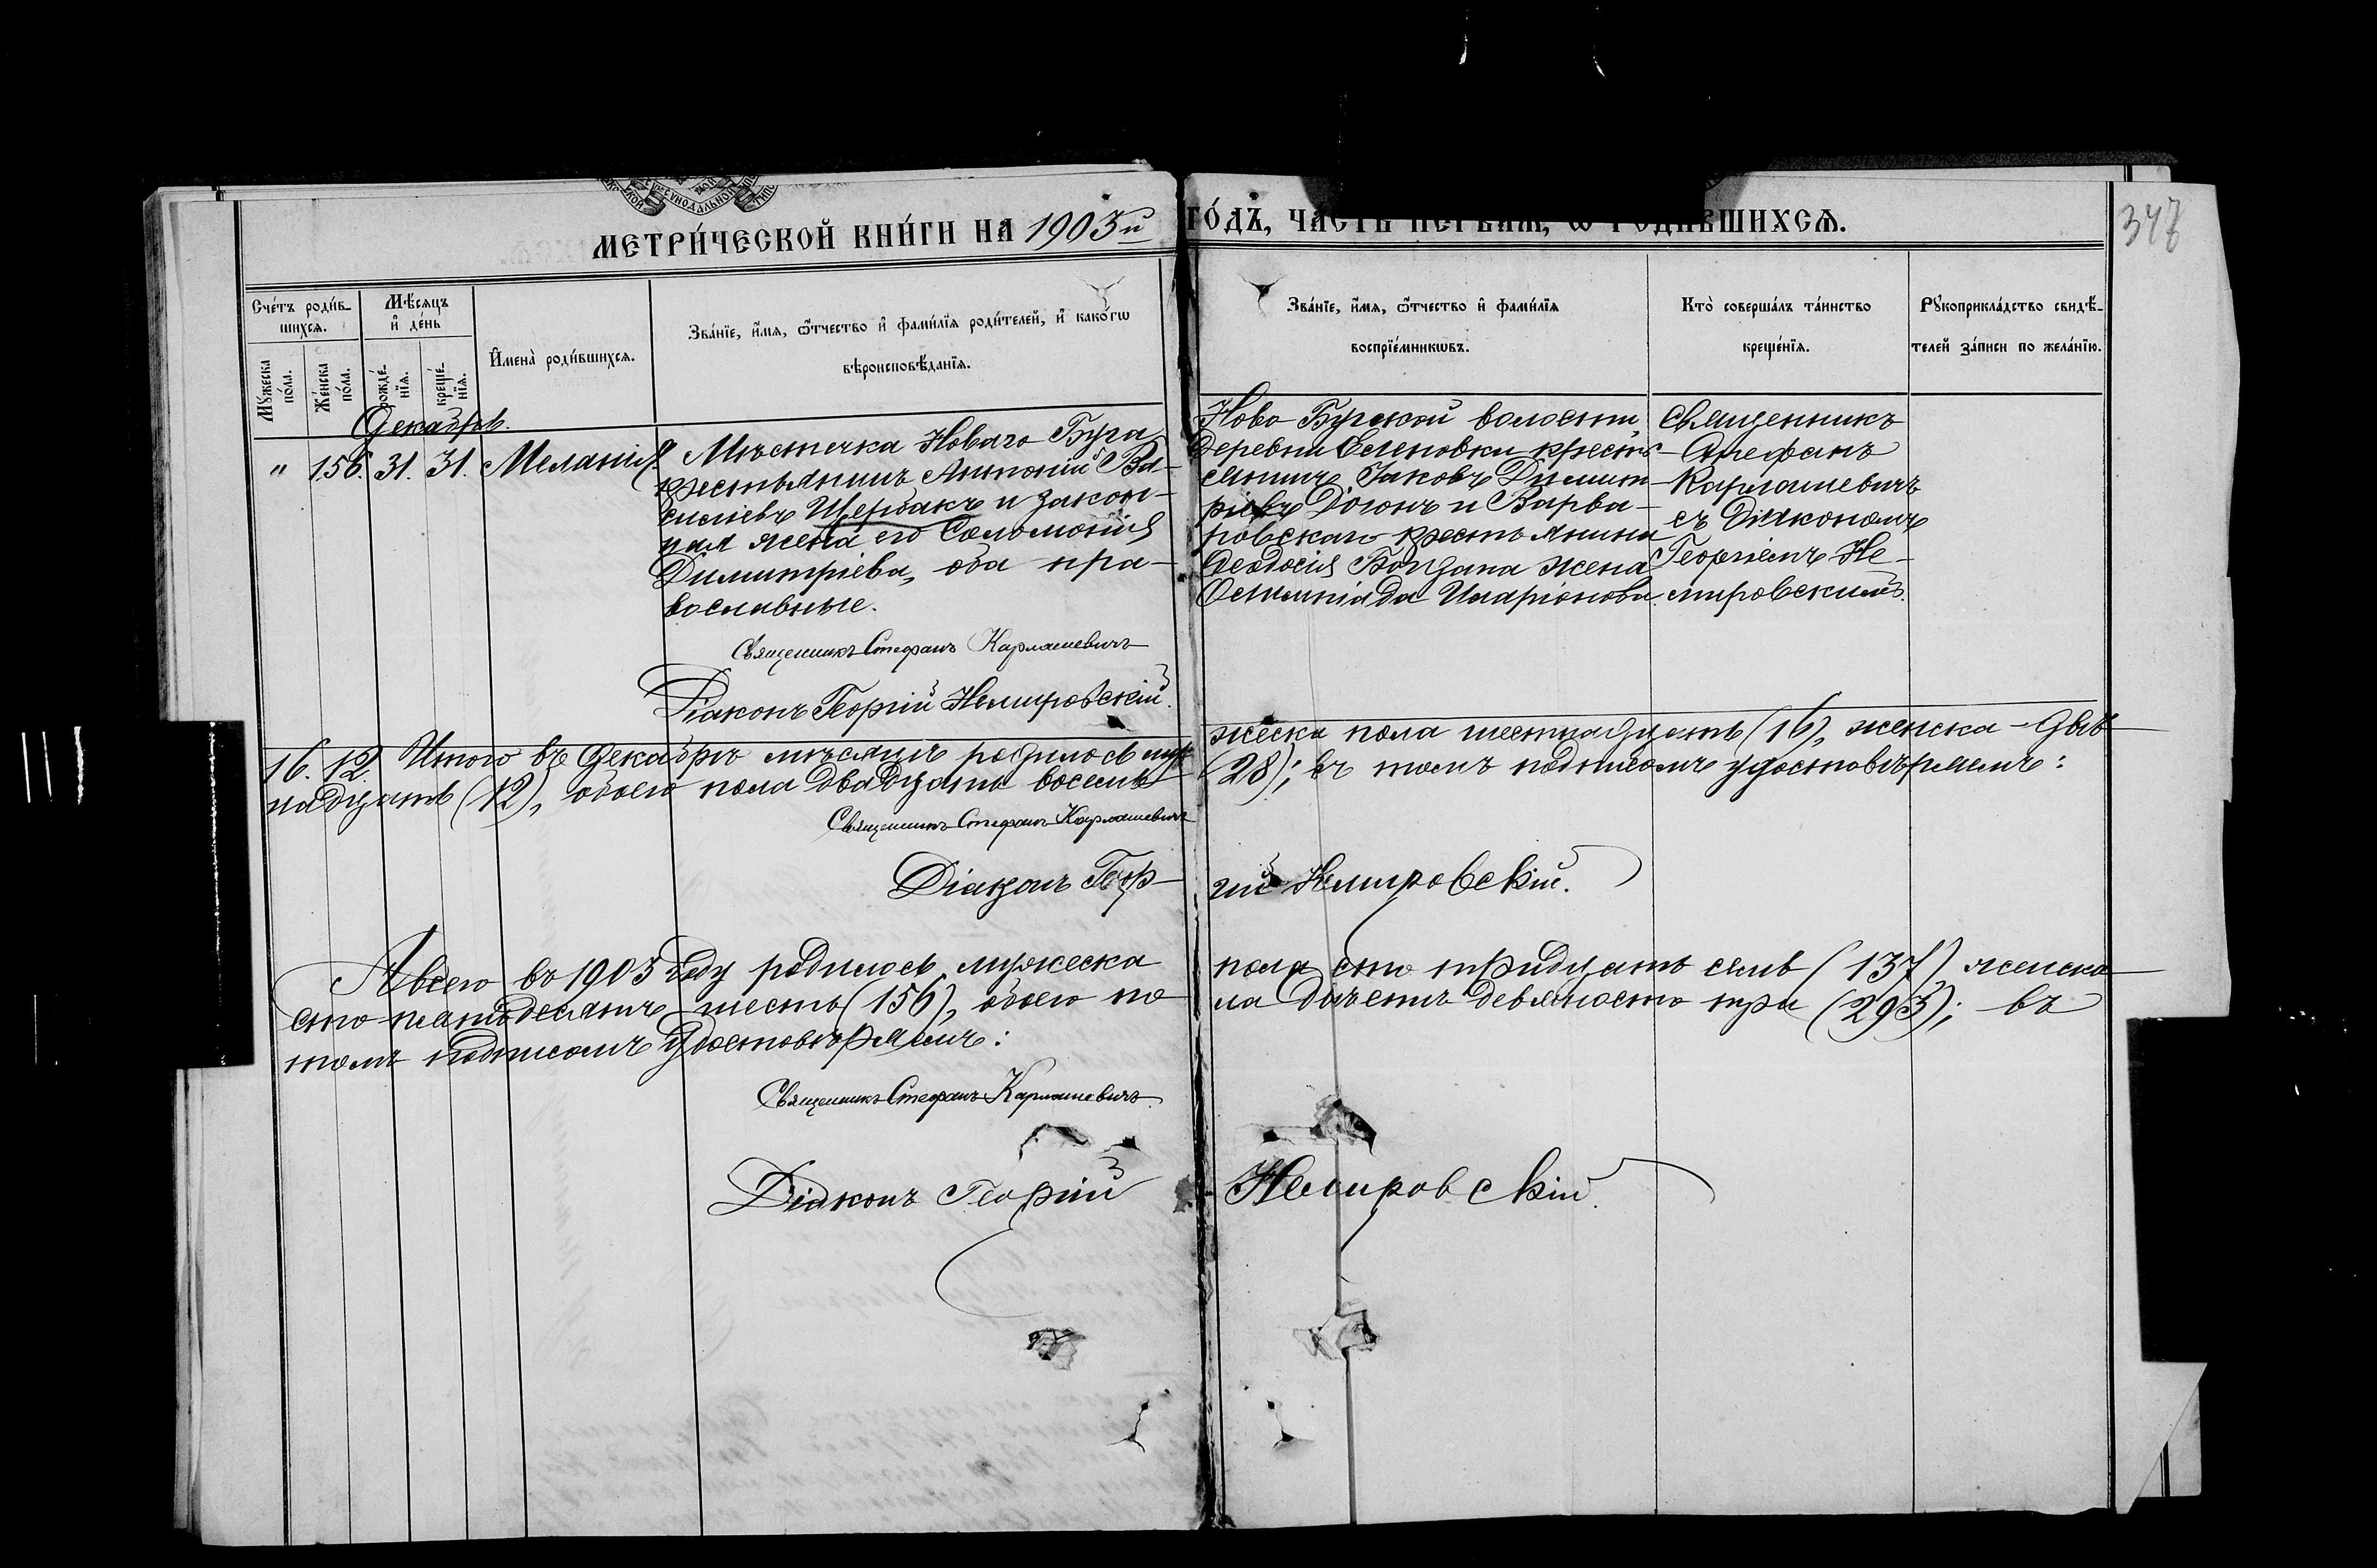 МЕТРИ́ЧЕСКОЙ КНИ́ГИ НА 1903й ГО́ДЪ, ЧАСТЬ ПЕРВАЯ, Ѡ РОДИ́ВШИХСѦ.
347
Сче́тъ роди́в-
шихсѧ.
Мѣ́сѧцъ
и҆ де́нь
Мꙋ́жеска
по́ла.
Же́нска
по́ла.
рожде́-
нїѧ.
креще́-
нїѧ.
И҆мена̀ роди́вшихсѧ.
Зва́нїе, и҆́мѧ, ѻ҆́тчество и҆ фами́лїѧ роди́телей, и҆ како́гѡ
вѣроисповѣ́данїѧ.
Зва́нїе, и҆́мѧ, ѻ҆́тчество и҆ фами́лїѧ
воспрїе́мникѡвъ.
Кто̀ соверша́лъ та́инство
креще́нїѧ.
Рꙋкоприкла́дство свидѣ́-
телей за́писи по жела́нїю.
Декабрь.
" 156. 31. 31. Меланія
Мѣстечка Новаго Буга
крестьянинъ Антоній Ва-
силіевъ Щербакъ и закон-
ная жена его Соломонія
Димитріева, оба пра-
вославные.
Ново-Бугской волости,
деревни Семеновки кресть-
янинъ Іаковъ Димит-
ріевъ Догонъ и Варва-
ровскаго крестьянина
Ѳеодосія Бондана жена
Олимпіада Иларіонова.
Священникъ
Стефанъ
Карпашевичъ
съ Діакономъ
Георгіемъ Не-
мировскимъ.
Священникъ Стефанъ Карпашевичъ
Діаконъ Георгій Немировскій.
16. 12. Итого въ Декабрѣ мѣсяцѣ родилось муж-
жеска пола шестнадцать (16), женска - двѣ-
надцать (12), обоего пола двадцать восемь
(28); въ томъ подписомъ удостовѣряемъ:
Священникъ Стефанъ Карпашевичъ
Діаконъ Геор-
гій Немировскій.
А всего въ 1903 году родилось мужеска
пола сто тридцать семь (137), женска
сто пятьдесятъ шесть (156), обоего по-
ла двѣсти девяносто три (293); въ
томъ подписомъ удостовѣряемъ:
Священникъ Стефанъ Карпашевичъ.
Діаконъ Георгій Немировскій.